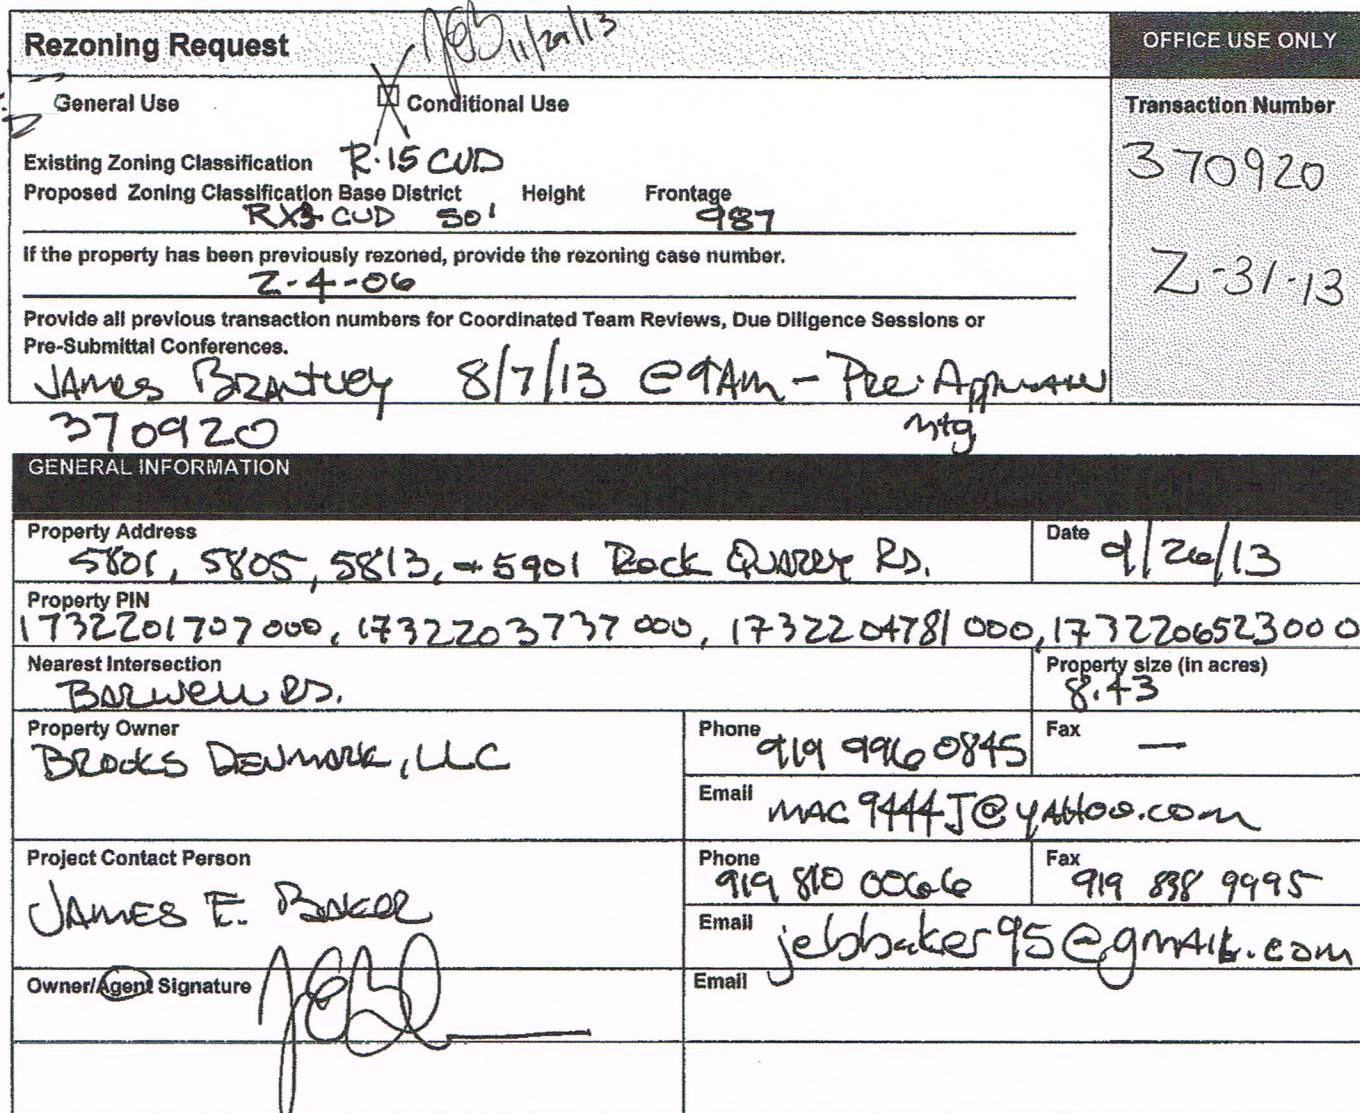 JEB 11/29/13
Rezoning Request
OFFICE USE ONLY
General Use Conditional Use
Transaction Number
370920
Z-31-13
Existing Zoning Classification R-15 CUD
Proposed Zoning Classification Base District Height Frontage
RX3 CUD 50' 987
If the property has been previously rezoned, provide the rezoning case number.
Z-4-06
Provide all previous transaction numbers for Coordinated Team Reviews, Due Diligence Sessions or
Pre-Submittal Conferences.
JAMES BRANTLEY 8/7/13 @ 9AM - Pre-
370920 mtg
GENERAL INFORMATION
Property Address Date
5801, 5805, 5813, + 5901 Rock Quarry RD. 9/26/13
Property PIN
1732201707000, 1732203737000, 1732204781000, 1732206523000
Nearest Intersection Property size (in acres)
Barwell RD. 8.43
Property Owner Phone Fax
BROOKS DENMARK, LLC 919 996 0845 —
Email MAC9444J@YAHOO.com
Project Contact Person Phone Fax
JAMES E. BAKER 919 810 0066 919 838 9995
Email jebbaker95@gmail.com
Owner/Agent Signature Email